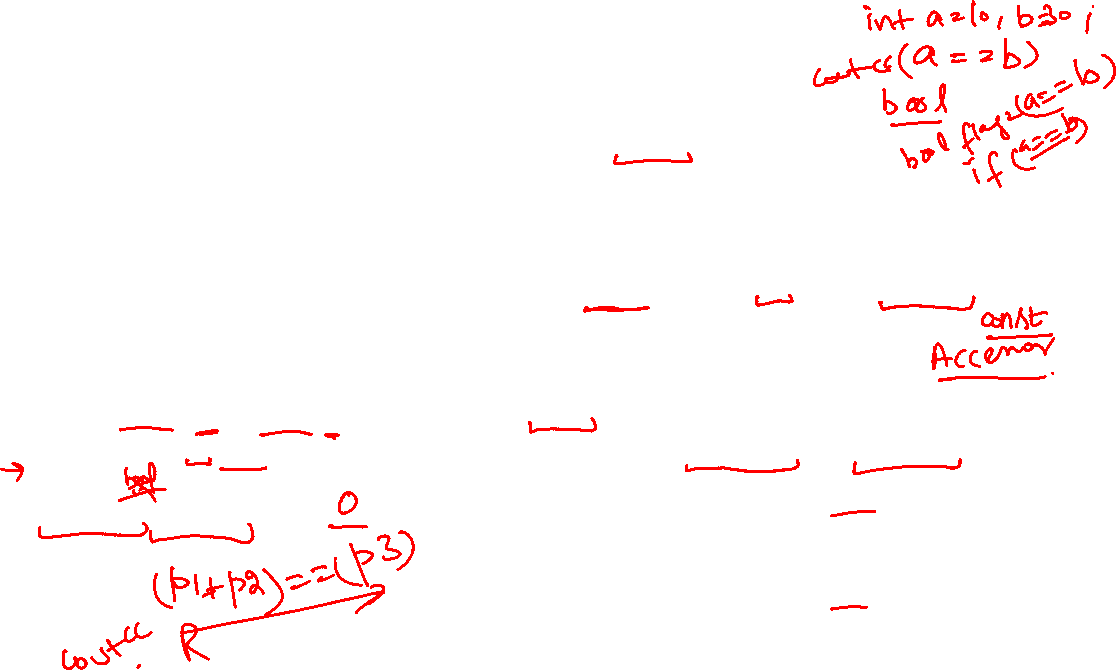 int a=10, b=30;
cout<<(a==b)
bool
bool flag=(a==b)
if (a==b)
const
Accessor
0
(p1+p2)==(p3)
cout<< R